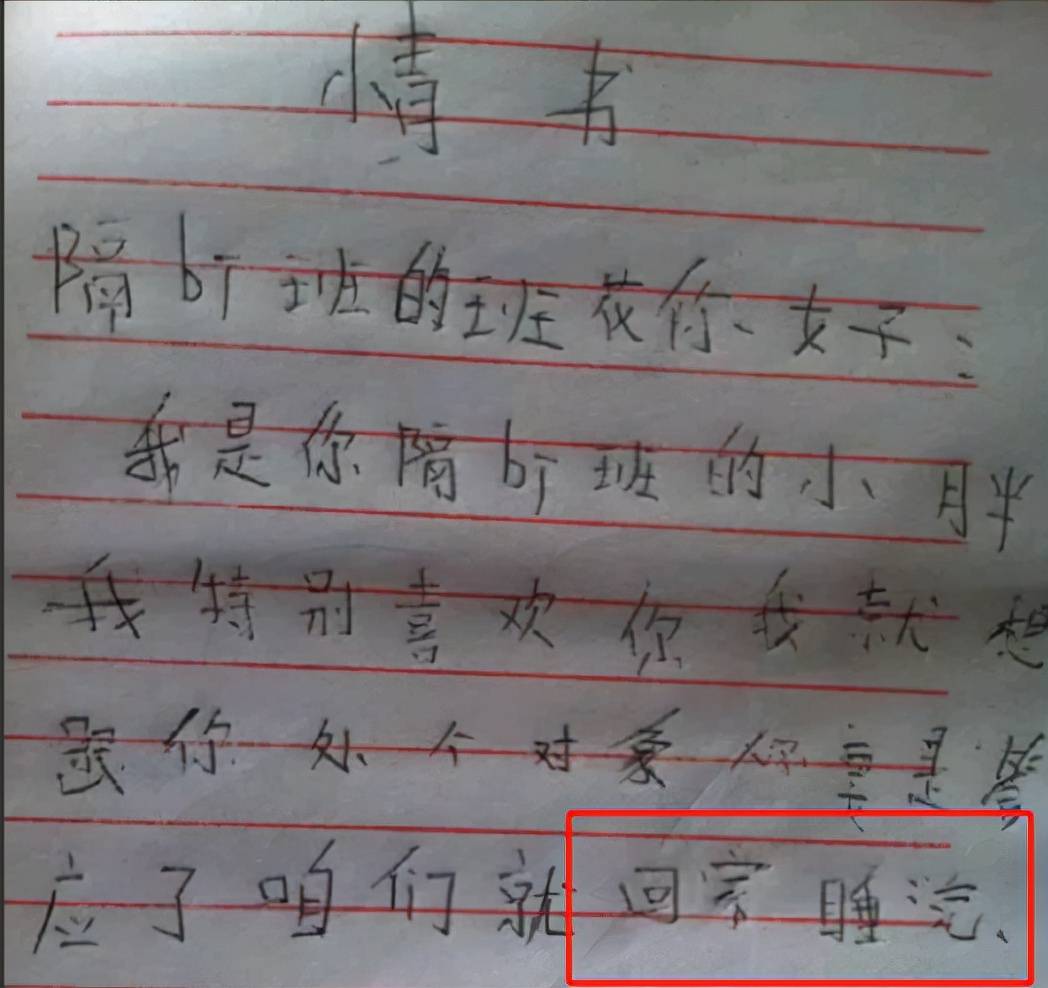 情书
隔bT班的班花你、女子:
我是你隔bT班的小月半
我特别喜欢你我就想
跟你处个对象你要是答
应了咱们就回家睡觉、